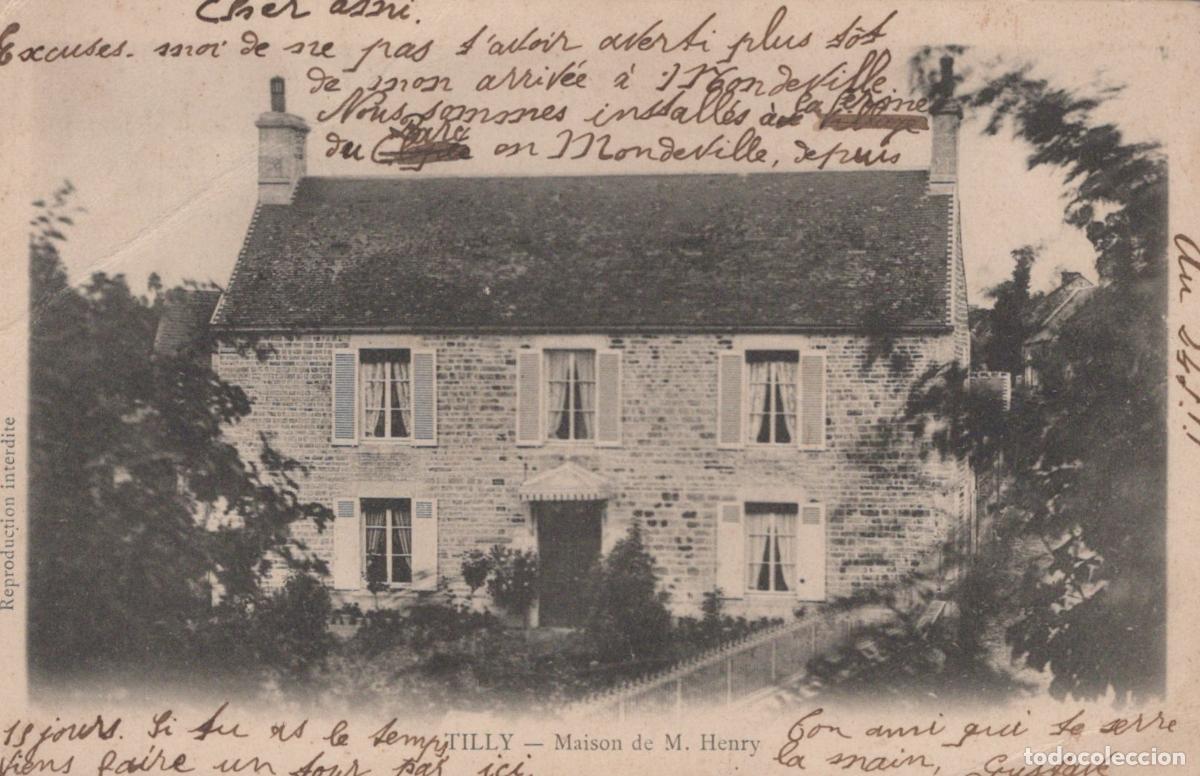 Cher ami.
Excuses-moi de ne pas t'avoir averti plus tôt
de mon arrivée à Mondeville
Nous sommes installés à la ferme
du Parc en Mondeville, depuis
15 jours. Si tu as le temps
viens faire un tour par ici.
Ton ami qui te serre
la main, Gustave
TILLY — Maison de M. Henry
Reproduction interdite
todocoleccion